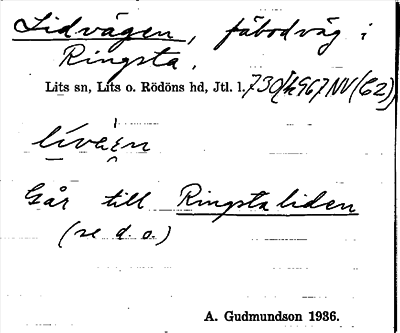 Lidvägen, fäbodväg i
Ringsta.
Lits sn, Lits o. Rödöns hd, Jtl. l. 730/h967NV(C2)
Går till Ringstaliden
(se d. o.)
A. Gudmundson 1936.